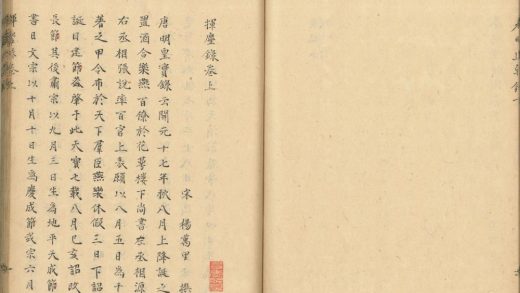 揮麈錄卷上
宋 楊萬里 撰
唐明皇實錄云開元十七年秋八月上降誕之
置酒合樂燕百僚於花萼樓下尚書左丞相源
右丞相張說率百官上表願以八月五日為千
著之甲令布於天下羣臣燕樂休假三日下詔
誕日建節蓋肇于此天寶七載八月己亥詔改
長節其後肅宗以九月三日生為地平天成節
書日文宗以十月十日生為慶成節武宗六月